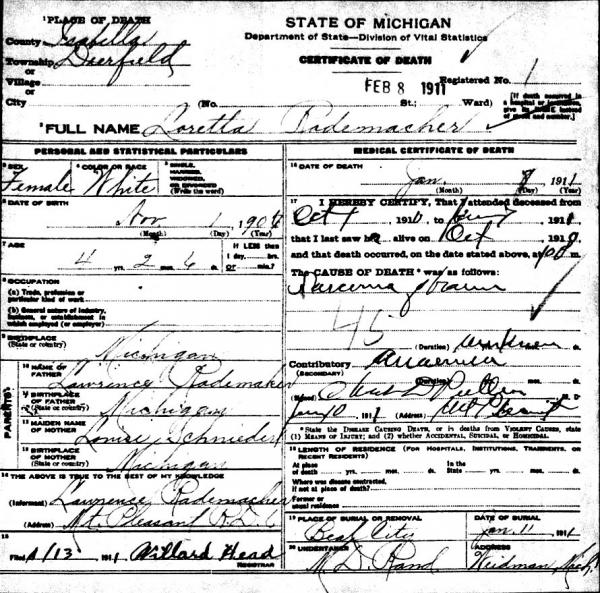 1 PLACE OF DEATH
County Isabella
Township Deerfield
or
Village
or
City
STATE OF MICHIGAN
Department of State—Division of Vital Statistics
CERTIFICATE OF DEATH
FEB 8 1911
Registered No. 1
(No. St.; Ward)
[If death occurred in a hospital or institution, give its NAME instead of street and number.]
2 FULL NAME Loretta Rademacher
PERSONAL AND STATISTICAL PARTICULARS
3 SEX
Female
4 COLOR OR RACE
White
5 SINGLE, MARRIED, WIDOWED, OR DIVORCED
(Write the word)
6 DATE OF BIRTH
Nov 1 1906
(Month) (Day) (Year)
7 AGE
4 yrs. 2 mos. 6 ds.
If LESS than
1 day, hrs.
or min.?
8 OCCUPATION
(a) Trade, profession or particular kind of work
(b) General nature of industry, business, or establishment in which employed (or employer)
9 BIRTHPLACE
(State or country)
Michigan
PARENTS
10 NAME OF FATHER
Lawrence Rademaker
11 BIRTHPLACE OF FATHER
(State or country)
Michigan
12 MAIDEN NAME OF MOTHER
Louise Schneider
13 BIRTHPLACE OF MOTHER
(State or country)
Michigan
14 THE ABOVE IS TRUE TO THE BEST OF MY KNOWLEDGE
(Informant) Lawrence Rademacher
(Address) Mt. Pleasant R.D. 6
15
Filed 1/13 1911 Willard Head
REGISTRAR
MEDICAL CERTIFICATE OF DEATH
16 DATE OF DEATH
Jan 1911
(Month) (Day) (Year)
17 I HEREBY CERTIFY, That I attended deceased from
Oct 1 1910 to 191
that I last saw h alive on Oct 191
and that death occurred, on the date stated above, at m.
The CAUSE OF DEATH * was as follows:
Sarcoma of brain
45
(Duration) unknown ds.
Contributory Anaemia
(SECONDARY)
(Duration) mos. ds.
(Signed) M D
Jan 10 1911 (Address) Mt Pleasant
* State the DISEASE CAUSING DEATH, or in deaths from VIOLENT CAUSES, state (1) MEANS OF INJURY; and (2) whether ACCIDENTAL, SUICIDAL, or HOMICIDAL.
18 LENGTH OF RESIDENCE (FOR HOSPITALS, INSTITUTIONS, TRANSIENTS, OR RECENT RESIDENTS)
At place of death yrs. mos. ds.
In the State yrs. mos. ds.
Where was disease contracted, if not at place of death?
Former or usual residence
19 PLACE OF BURIAL OR REMOVAL
Beal City
DATE OF BURIAL
Jan. 11 1911
20 UNDERTAKER
M. D. Rand
ADDRESS
Weidman Mich.